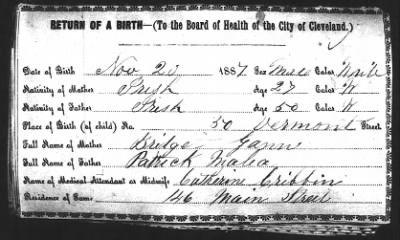 RETURN OF A BIRTH—(To the Board of Health of the City of Cleveland.)
Date of Birth Nov 20 1887 Sex Male Color White
Nativity of Mother Irish Age 27 Color W
Nativity of Father Irish Age 50 Color W
Place of Birth (of child) No. 50 Vermont Street
Full Name of Mother Bridge Gann
Full Name of Father Patrick Malia
Name of Medical Attendant or Midwife Catherine Cribbin
Residence of Same 146 Main Street